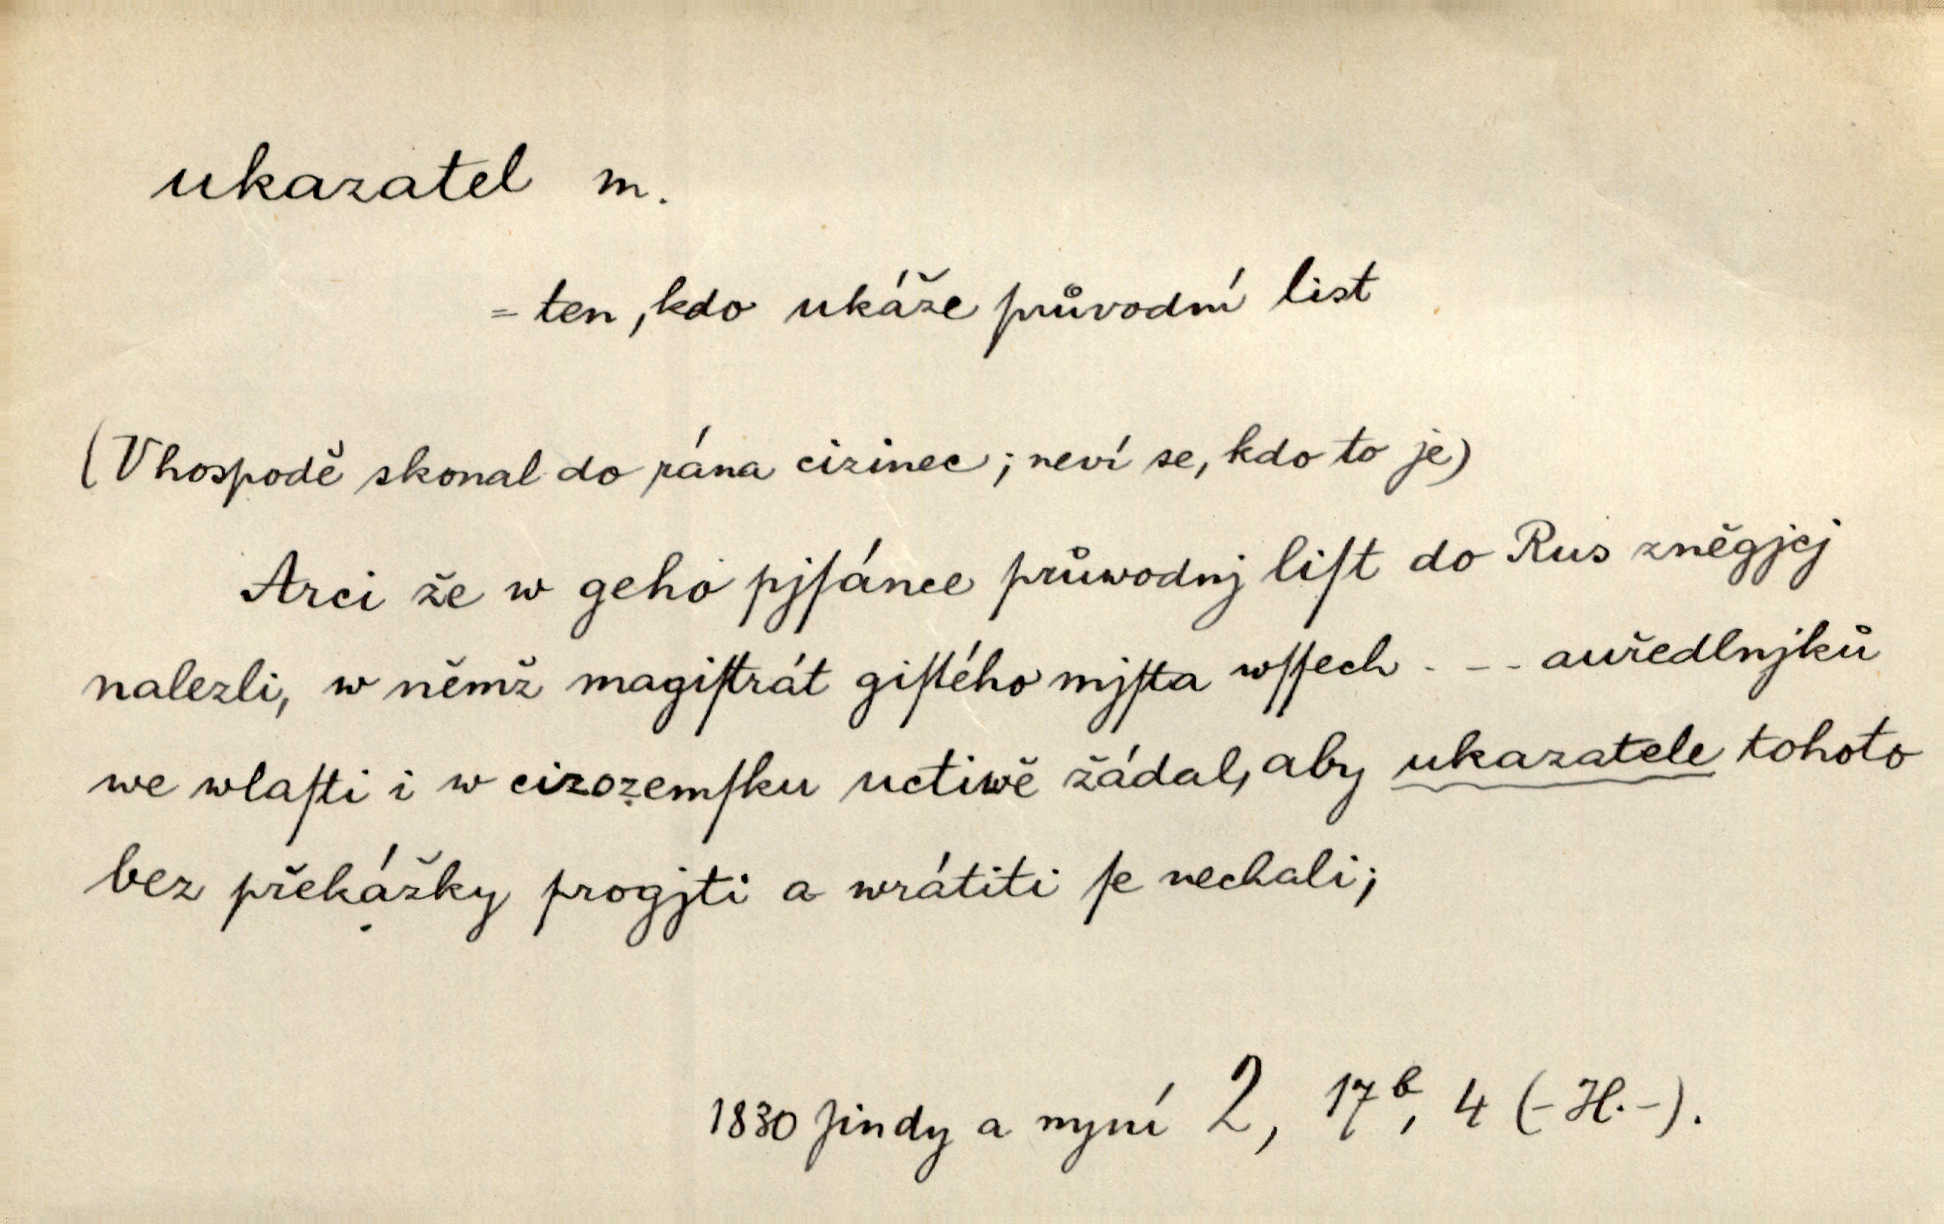 ukazatel m.
= ten, kdo ukáže průvodní list
(V hospodě skonal do rána cizinec; neví se, kdo to je)
Arci že w geho pjſánce průwodnj liſt do Rus zněgjcj
nalezli, w němž magiſtrát giſtého mjſta wſſech - - - auředlnjků
we wlaſti i w cizozemſku uctiwě žádal, aby ukazatele tohoto
bez překážky progjti a wrátiti ſe nechali;
1830 Jindy a nyní 2, 17b, 4 (-H.-).